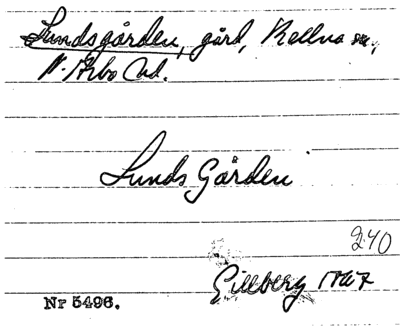 Lundsgården, gård, Kellna sn,
N. Åsbo hd.
Lunds Gården
240
Gillberg 1767
Nr 5496.